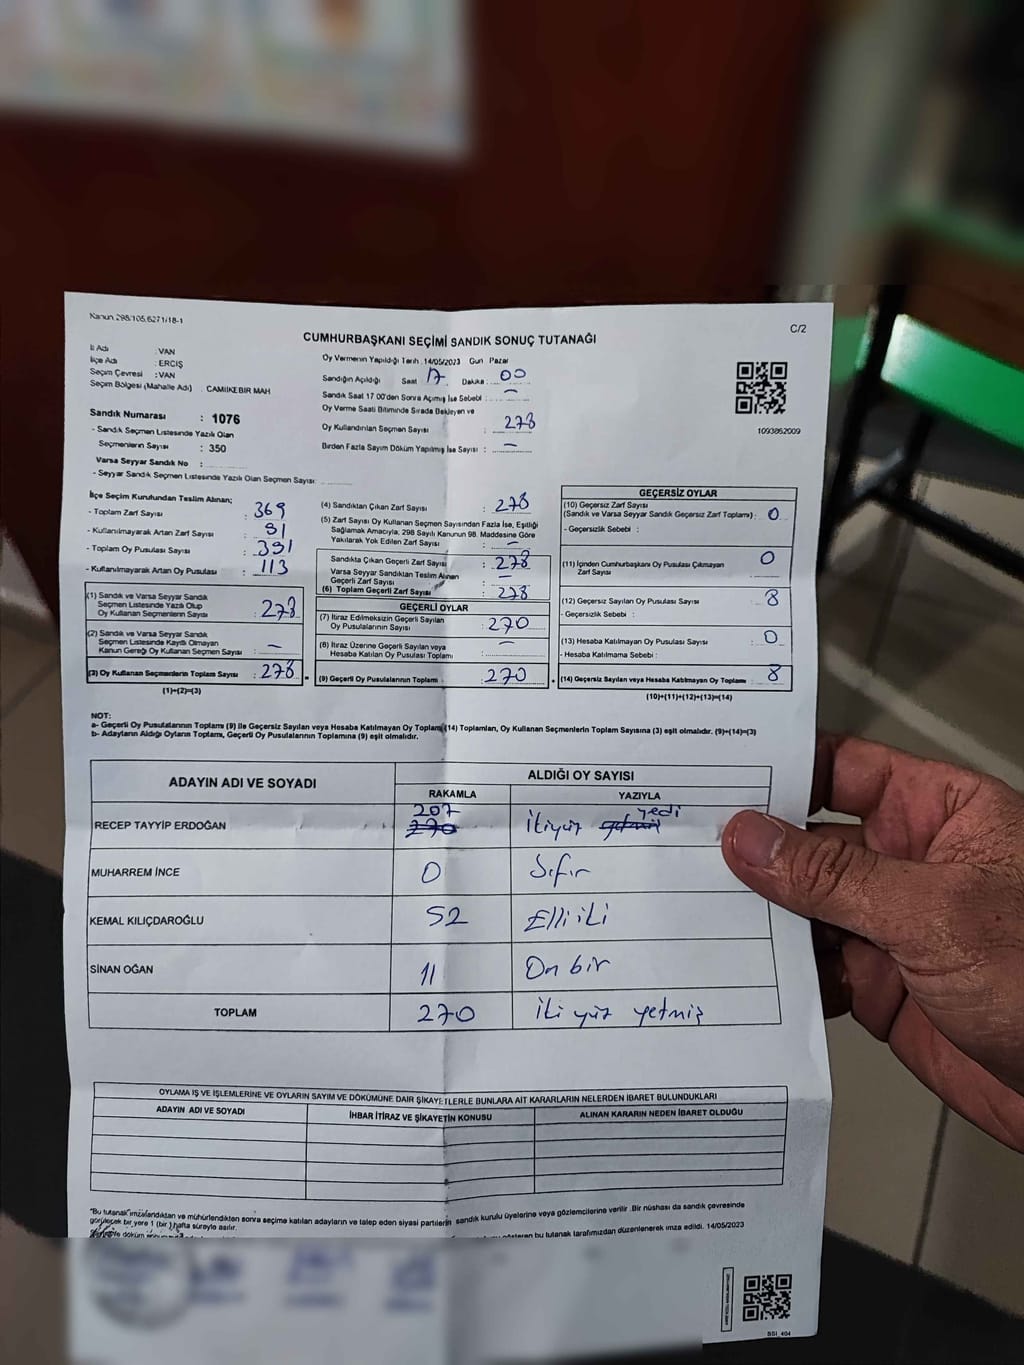 Kanun 298/105,6271/18-1
C/2
CUMHURBAŞKANI SEÇİMİ SANDIK SONUÇ TUTANAĞI
İl Adı : VAN
İlçe Adı : ERCİŞ
Seçim Çevresi : VAN
Seçim Bölgesi (Mahalle Adı) : CAMİİKEBİR MAH
Sandık Numarası : 1076
- Sandık Seçmen Listesinde Yazılı Olan
Seçmenlerin Sayısı : 350
Varsa Seyyar Sandık No :
- Seyyar Sandık Seçmen Listesinde Yazılı Olan Seçmen Sayısı:
Oy Vermenin Yapıldığı Tarih :14/05/2023 Gün Pazar
Sandığın Açıldığı Saat 17 Dakika : 00
Sandık Saat 17 00'den Sonra Açımış İse Sebebi : —
Oy Verme Saati Bitiminde Sırada Bekleyen ve
Oy Kullandırılan Seçmen Sayısı : 278
Birden Fazla Sayım Döküm Yapılmış İse Sayısı : —
1093862009
İlçe Seçim Kurulundan Teslim Alınan;
- Toplam Zarf Sayısı : 369
- Kullanılmayarak Artan Zarf Sayısı : 91
- Toplam Oy Pusulası Sayısı : 391
- Kullanılmayarak Artan Oy Pusulası : 113
(1) Sandık ve Varsa Seyyar Sandık
Seçmen Listesinde Yazılı Olup
Oy Kullanan Seçmenlerin Sayısı : 278
(2) Sandık ve Varsa Seyyar Sandık
Seçmen Listesinde Kayıtlı Olmayan
Kanun Gereği Oy Kullanan Seçmen Sayısı : —
(3) Oy Kullanan Seçmenlerin Toplam Sayısı : 278
(1)+(2)=(3)
(4) Sandıktan Çıkan Zarf Sayısı : 278
(5) Zarf Sayısı Oy Kullanan Seçmen Sayısından Fazla İse, Eşitliği
Sağlamak Amacıyla, 298 Sayılı Kanunun 98. Maddesine Göre
Yakılarak Yok Edilen Zarf Sayısı : —
Sandıkta Çıkan Geçerli Zarf Sayısı : 278
Varsa Seyyar Sandıktan Teslim Alınan
Geçerli Zarf Sayısı : —
(6) Toplam Geçerli Zarf Sayısı : 278
GEÇERLİ OYLAR
(7) İtiraz Edilmeksizin Geçerli Sayılan
Oy Pusulalarının Sayısı : 270
(8) İtiraz Üzerine Geçerli Sayılan veya
Hesaba Katılan Oy Pusulası Toplamı : —
(9) Geçerli Oy Pusulalarının Toplamı : 270
GEÇERSİZ OYLAR
(10) Geçersiz Zarf Sayısı
(Sandık ve Varsa Seyyar Sandık Geçersiz Zarf Toplamı) : 0
- Geçersizlik Sebebi :
(11) İçinden Cumhurbaşkanı Oy Pusulası Çıkmayan
Zarf Sayısı : 0
(12) Geçersiz Sayılan Oy Pusulası Sayısı : 8
- Geçersizlik Sebebi :
(13) Hesaba Katılmayan Oy Pusulası Sayısı : 0
- Hesaba Katılmama Sebebi :
(14) Geçersiz Sayılan veya Hesaba Katılmayan Oy Toplamı : 8
(10)+(11)+(12)+(13)=(14)
NOT:
a- Geçerli Oy Pusulalarının Toplamı (9) ile Geçersiz Sayılan veya Hesaba Katılmayan Oy Toplam (14) Toplamları, Oy Kullanan Seçmenlerin Toplam Sayısına (3) eşit olmalıdır. (9)+(14)=(3)
b- Adayların Aldığı Oyların Toplamı, Geçerli Oy Pusulalarının Toplamına (9) eşit olmalıdır.
ADAYIN ADI VE SOYADI
ALDIĞI OY SAYISI
RAKAMLA YAZIYLA
RECEP TAYYİP ERDOĞAN 207 270 İkiyüz yetmiş yedi
MUHARREM İNCE 0 Sıfır
KEMAL KILIÇDAROĞLU 52 Elli iki
SİNAN OĞAN 11 On bir
TOPLAM 270 iki yüz yetmiş
OYLAMA İŞ VE İŞLEMLERİNE VE OYLARIN SAYIM VE DÖKÜMÜNE DAİR ŞİKAYETLERLE BUNLARA AİT KARARLARIN NELERDEN İBARET BULUNDUKLARI
ADAYIN ADI VE SOYADI İHBAR İTİRAZ VE ŞİKAYETİN KONUSU ALINAN KARARIN NEDEN İBARET OLDUĞU
"Bu tutanak imzalandıktan ve mühürlendikten sonra seçime katılan adayların ve talep eden siyasi partilerin sandık kurulu üyelerine veya gözlemcilerine verilir .Bir nüshası da sandık çevresinde
görülecek bir yere 1 (bir ) hafta süreyle asılır.
döküm gösteren bu tutanak tarafımızdan düzenlenerek imza edildi. 14/05/2023